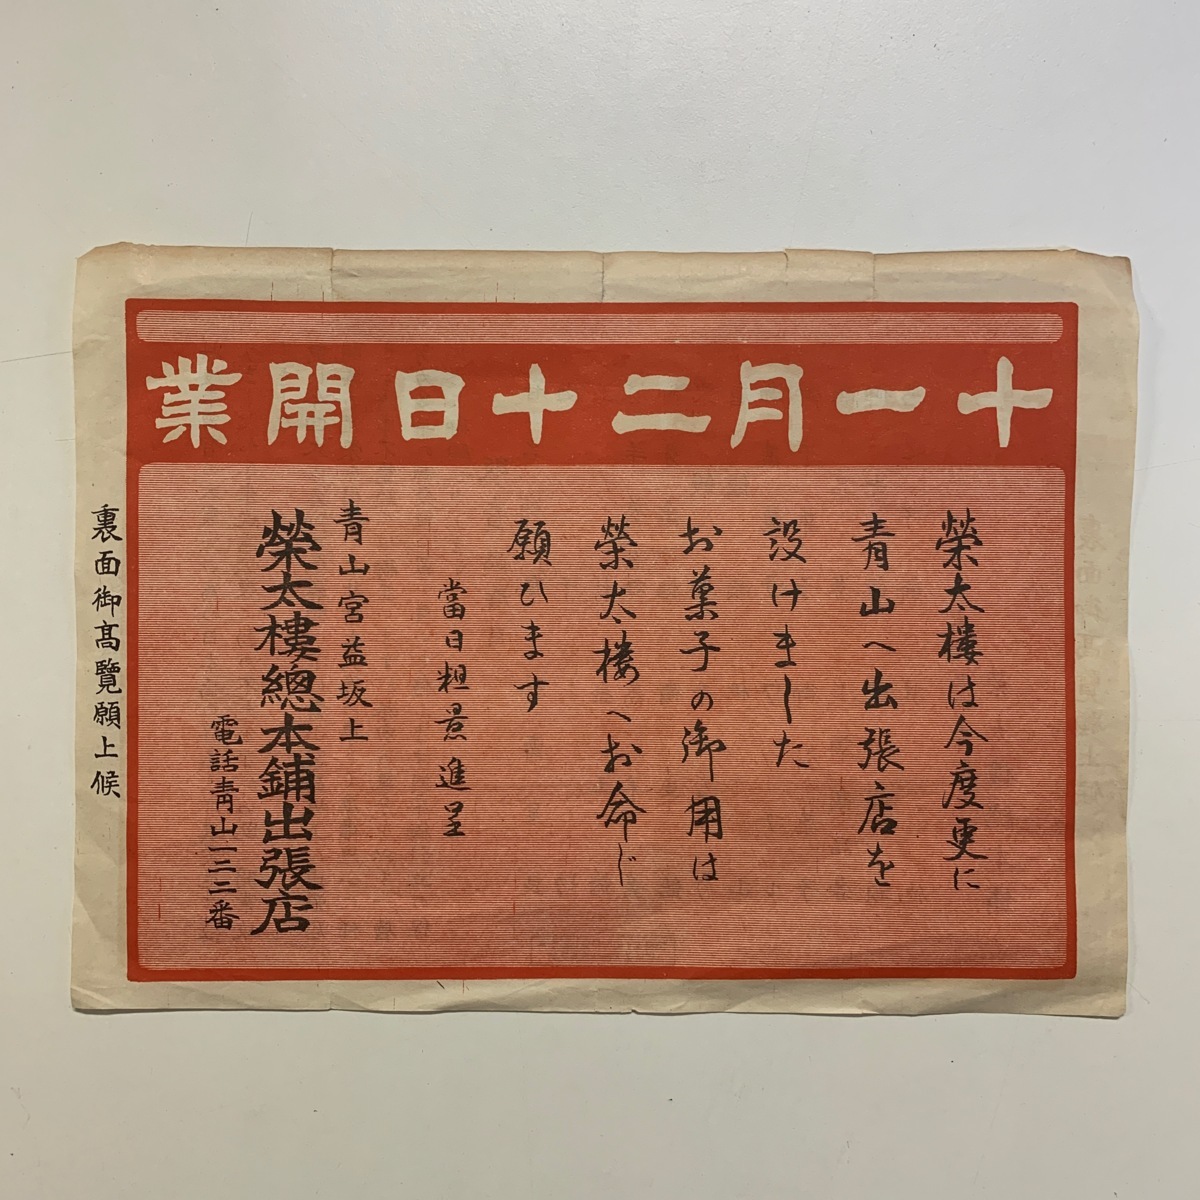 十一月二十日開業
榮太樓は今度更に
青山へ出張店を
設けました
お菓子の御用は
榮太樓へお命じ
願ひます
當日粗景進呈
青山宮益坂上
榮太樓總本鋪出張店
電話青山一二二番
裏面御高覽願上候